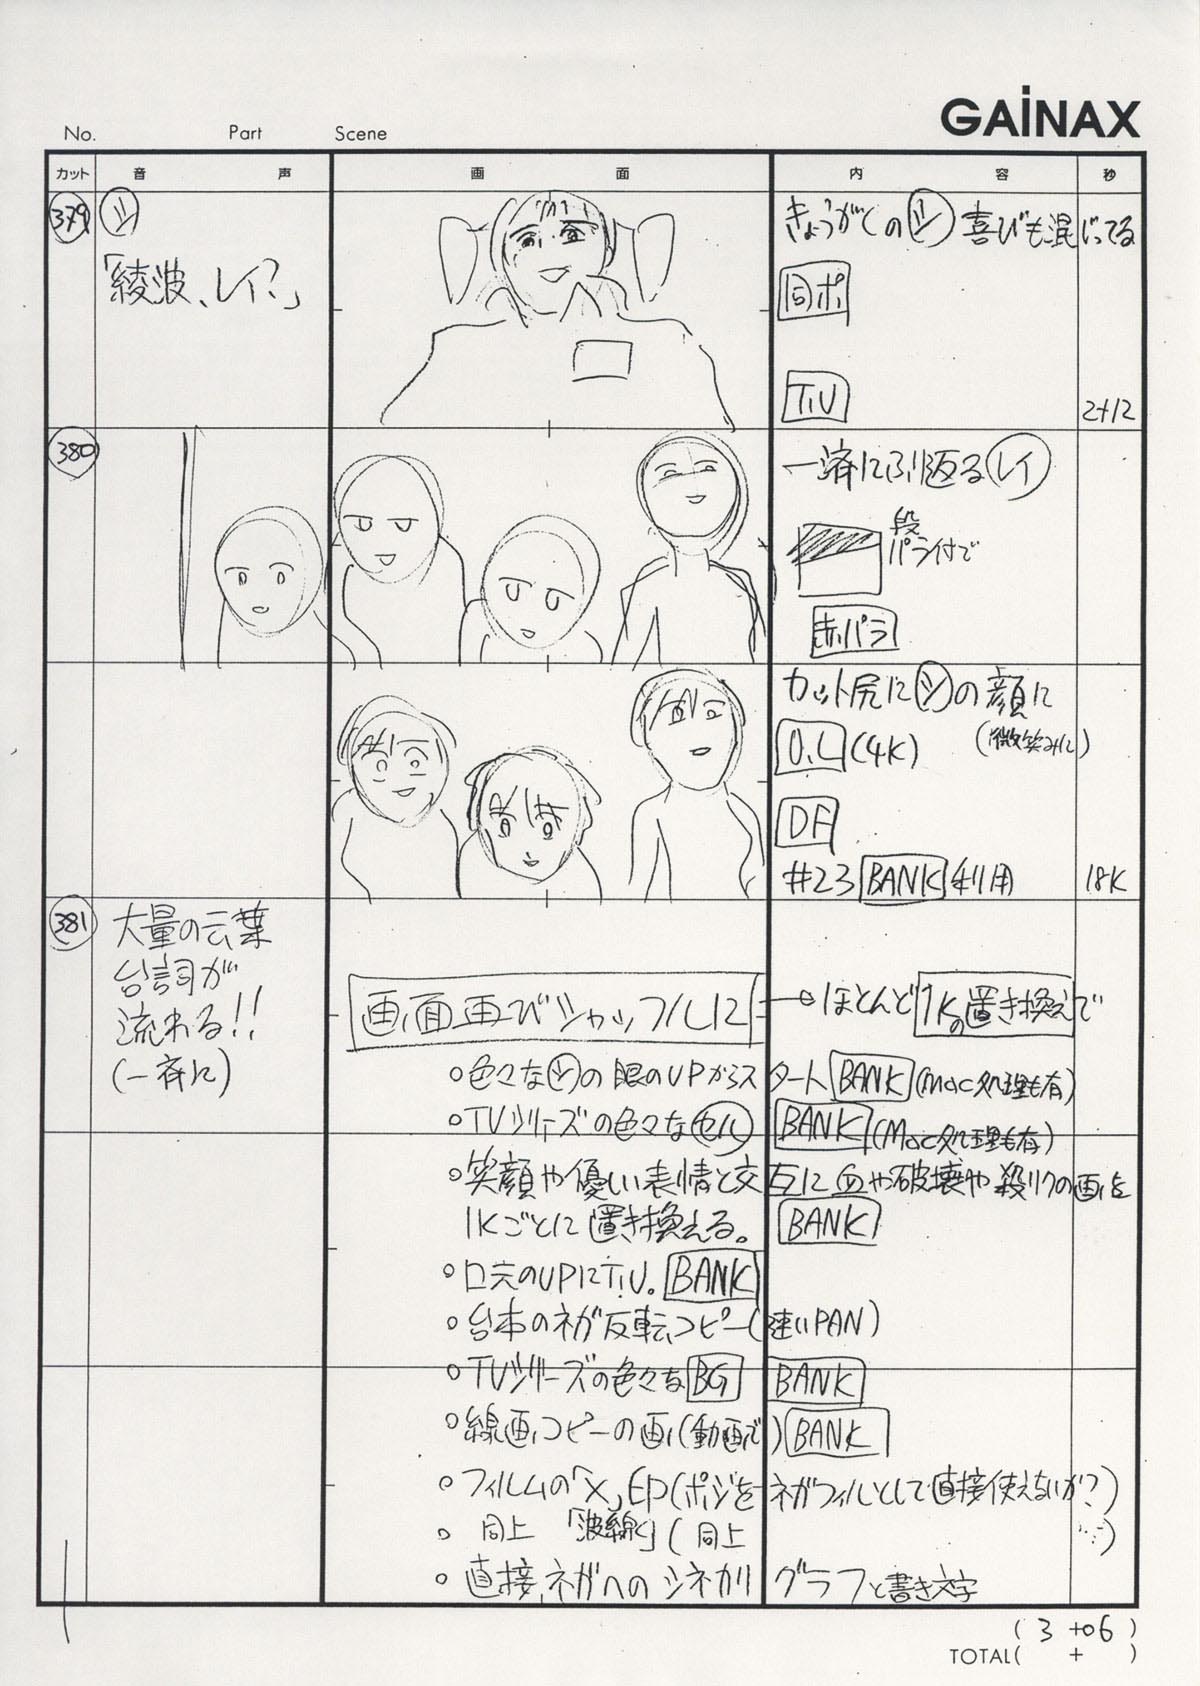 GAiNAX
No. Part Scene
カット 音 声 画 面 内 容 秒
379 シ
「綾波、レイ?」
きょうがくのシ 喜びも混じってる
同ポ
T.U
2+12
380
一済にふり返るレイ
段
パラ付で
赤パラ
カット尻にシの顔に
O.L (4K) (微笑みに)
DF
#23 BANK 利用
18K
381
大量の言葉
台詞が
流れる!!
(一斉に)
画面再びシャッフルに → ほとんど1Kの置き換えで
○色々なシの眼のUPからスタート BANK (Mac処理も有)
○TVシリーズの色々なセル BANK (Mac処理も有)
○笑顔や優しい表情と交互に血や破壊や殺リクの画を
1Kごとに置き換える。 BANK
○口元のUPにT.U。 BANK
○台本のネガ反転コピー(速いPAN)
○TVシリーズの色々なBG BANK
○線画コピーの画(動画で) BANK
○フィルムの「×」印(ポジをネガフィルとして直接使えないか?)
○ 同上 「波線」(同上 )
○直接、ネガへのシネカリグラフと書き文字
(3+06)
TOTAL( + )